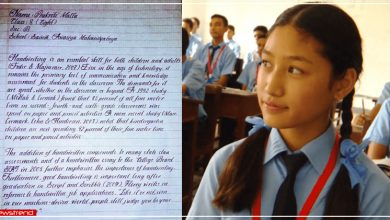 Name: Prakriti Malla
Class: 8 (Eight)
Sec: 'B'
School: Sainik Awasiya Mahavidyalaya
Handwriting is an essential skill for both children and adults
(Feder & Majnemer, 2007). Even in the age of technology, it
remains the primary tool of communication and knowledge
assessment for students in the classroom. The demands for it
are great, whether in the classroom or beyond. A 1992 study
(McHale & Cermak) found that 85 percent of all fine motor
time in second- fourth- and sixth-grade classrooms was
spent on paper and pencil activities. A more recent study (Marr,
Cermak, Cohn & Henderson, 2003) noted that kindergarten
children are now spending 42 percent of their fine motor time
on paper and pencil activities.
The addition of handwritten components to many state
assessments and of a handwritten essay to the College Board
SAT in 2005 further emphasize the importance of handwriting.
Furthermore, good handwriting is important long after
graduation
in our machine-driven world, people still judge you by your
newstrend